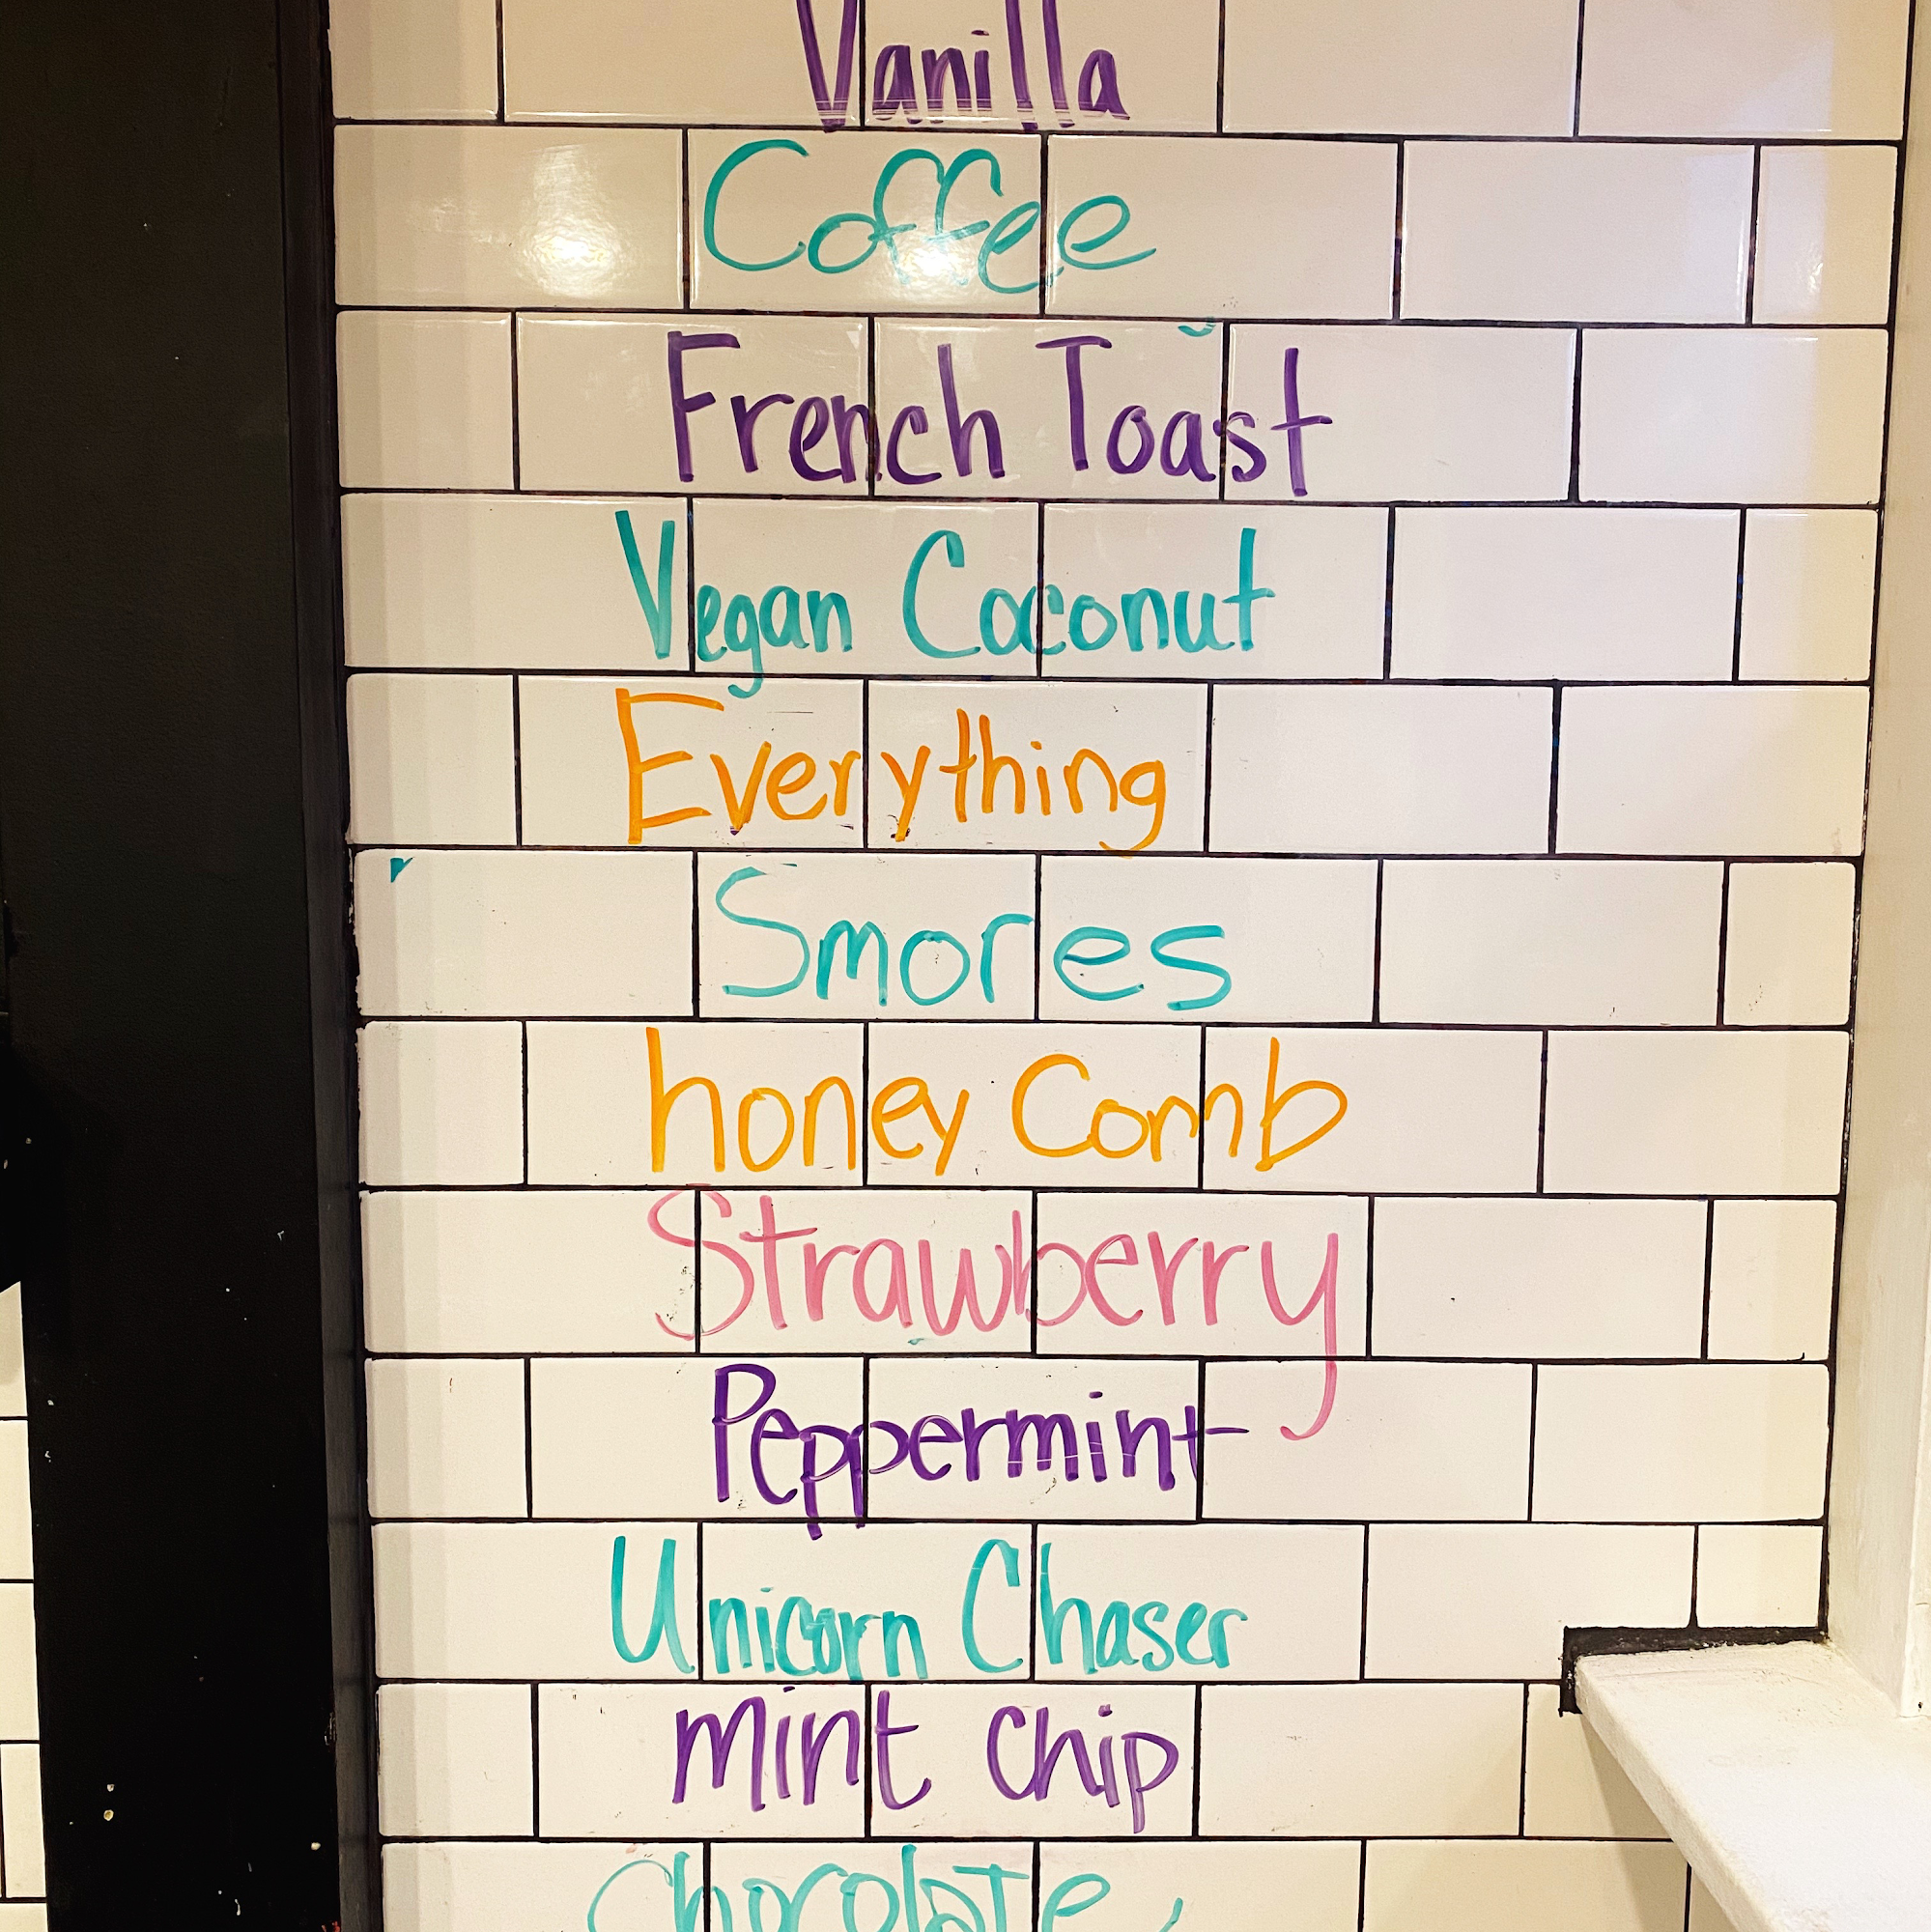 Vanilla
Coffee
French Toast
Vegan Coconut
Everything
Smores
honey Comb
Strawberry
Peppermint
Unicorn Chaser
mint chip
Chocolate